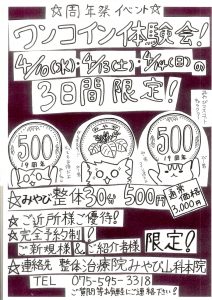 ☆周年祭イベント☆
ワンコイン体験会!
4/10(水)・4/13(土)・4/14(日)の
3日間限定!
500
19周年
500
19周年
☆みやび整体30分500円
通常価格3,000円
☆ご近所様ご優待!
☆完全予約制!
ご新規様&ご紹介者様限定!
☆連絡先 整体治療院みやび山科本院
TEL 075-595-3318
ご質問等お気軽にご連絡下さい!